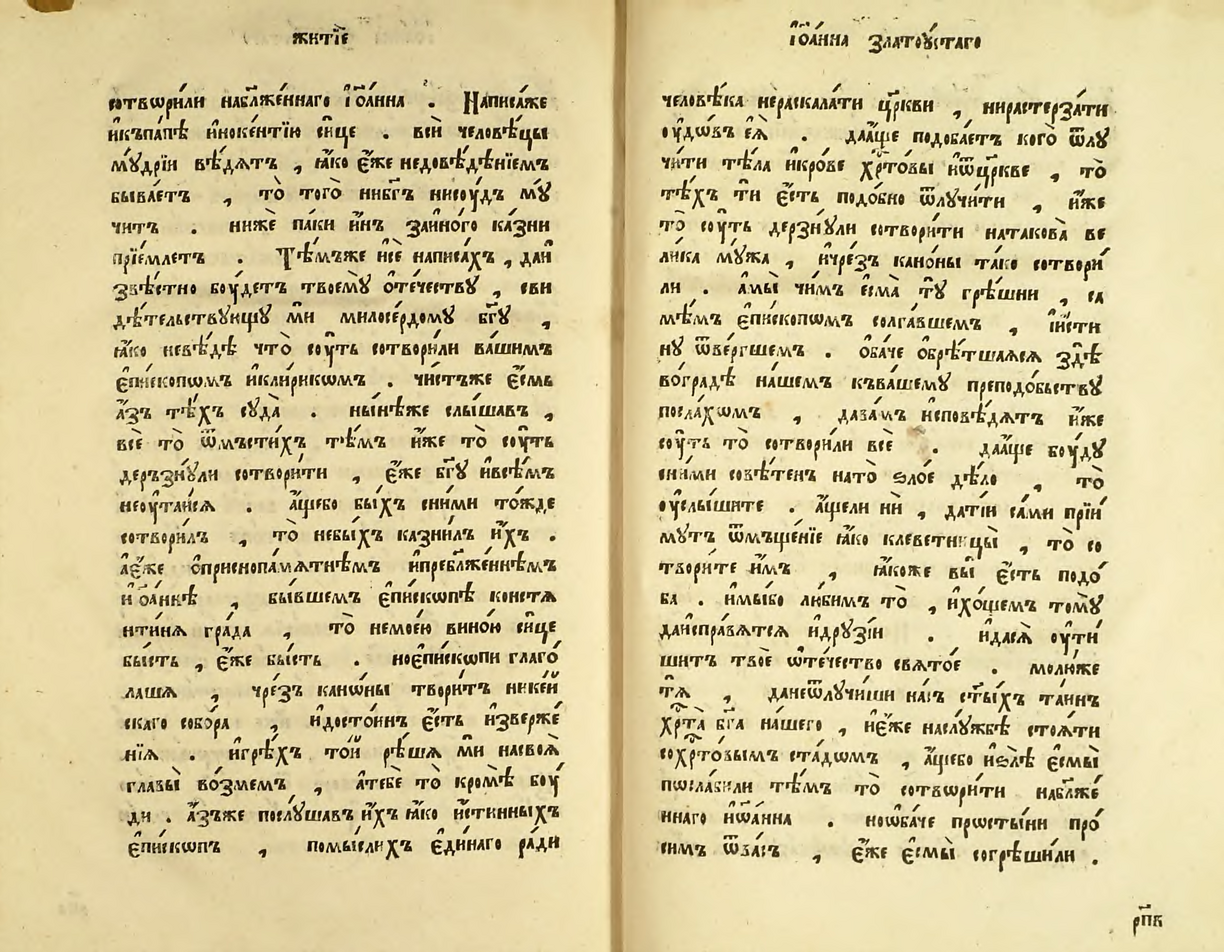 житїе
сотвѡри́ли наблⷤже́ннаго і҆ѡа́нна . Написа́же
и҆къпа́пѣ и҆ноке́нтїю си́це . всѝ человѣ́цы
мꙋ́дрїи вѣ́дѧтъ , ꙗ҆́ко є҆́же недовѣ́дѣнїемъ
быва́етъ , то̀ того̀ нибг҃ъ нисоу́дъ мꙋ́
читъ . нижѐ па́ки и҆́нъ заи́но́го ка́зни
прїе́млетъ . Тѣ́мъже исѐ написа́хъ , даи
звѣ́стно боу́детъ твоемꙋ̀ ѻте́чествꙋ , сви
дѣ́тельствꙋющꙋ мѝ милосе́рдомꙋ бг҃ꙋ ,
ꙗ҆́ко невѣ́дѣ что̀ соу́ть сотвори́ли ва́шимъ
є҆пи́скопѡмъ и҆кли́рикѡмъ . чи́стъже є҆́смь
а҆́зъ тѣ́хъ сꙋда̀ . ны́нѣже слы́шавъ ,
всѐ то̀ ѿмъсти́хъ тѣ́мъ и҆́же то̀ соу́ть
дерьзнꙋ́ли сотвори́ти , є҆́же бг҃ꙋ и҆всѣ́мъ
неоутаи́сѧ . а҆́щебо бы́хъ сни́ми то́жде
сотвори́лъ , то̀ небы́хъ казни́лъ и҆́хъ .
а҆є҆́же ѻприснопа́мѧтнѣмъ и҆пребл҃же́ннѣмъ
и҆ѡа́ннѣ , бы́вшемъ є҆пи́скопѣ констѧ
нти́нѧ гра́да , то̀ немое́ю вино́ю си́це
бы́сть , є҆́же бы́сть . ноє҆пи́скѡпи глаго́
лашѧ , чре́зъ канѡ́ны твори́тъ нике́й
скаго собо́ра , и҆досто́инъ є҆́сть и҆зверже́
нїѧ . и҆грѣ́хъ то́й рѣ́шѧ мѝ насвоѧ̀
главы̀ во́змемъ , а҆тебѐ то̀ кромѣ̀ боу́
ди . а҆́зъже послꙋ́шавъ и҆́хъ ꙗ҆́ко и҆́стинныхъ
є҆пи́скѡпъ , помы́слихъ є҆ди́наго ра́ди
і҆ѡа́нна златоꙋ́стаго
человѣ́ка нераскала́ти цр҃кви , нирастерза́ти
оу҆дѡ́въ є҆ѧ̀ . даа҆́ще подоба́етъ кого̀ ѿлꙋ
чи́ти тѣ́ла и҆кро́ве хрⷭ҇то́вы и҆ѿцр҃кве , то̀
тѣ́хъ тѝ є҆́сть подо́бно ѿлꙋчи́ти , и҆́же
то̀ соу́ть дерзнꙋ́ли сотвори́ти натакова̀ ве
ли́ка мꙋ́жа , и҆чре́зъ кано́ны та́ко сотвори́
ли . а҆мы̀ чи́мъ є҆сма̀ тꙋ̀ грѣ́шни , са
мѣ́мъ є҆пи́скопѡмъ солга́вшемъ , і҆и҆́сти
нꙋ ѿве́ргшемъ . ѻба́че ѻбрѣ́тшаѧсѧ здѣ̀
вогра́дѣ на́шемъ къва́шемꙋ преподо́бьствꙋ
посла́хѡмъ , даза́мъ и҆сповѣ́дѧтъ и҆́же
соу́ть то̀ сотвори́ли всѐ . даа҆́ще боу́дꙋ
сни́ми совѣ́тенъ нато̀ ѕло́е дѣ́ло , то̀
оу҆слы́шите . а҆́щели нѝ , дати́и са́ми прїи́
мꙋтъ ѿмще́нїе ꙗ҆́ко клеветницы̀ , то̀ со
твори́те и҆́мъ , ꙗ҆́коже вы̀ є҆́сть подо́
ба . и҆мы́бо лю́бимъ то̀ , и҆хо́щемъ томꙋ̀
даи҆спра́вѧтсѧ и҆дрꙋзі́и . и҆да́сѧ оу҆ти́
шитъ твоѐ ѡте́чество свѧто́е . молю́же
тѧ̀ , данеѿлꙋчи́ши на́съ ст҃ы́хъ та́инъ
хрⷭ҇та̀ бг҃а на́шего , и҆є҆́же наслꙋ́жбѣ стоѧ́ти
сохрⷭ҇то́вымъ ста́дѡмъ , а҆́щебо и҆ѕлѣ̀ є҆смы̀
пѡсла́били тѣ́мъ то̀ сотвѡри́ти набл҃же́
ннаго и҆ѡа́нна . ноѡба́че прѡсты́ни про́
симъ ѿва́съ , є҆́же є҆смы̀ согрѣши́ли .
рп҃в